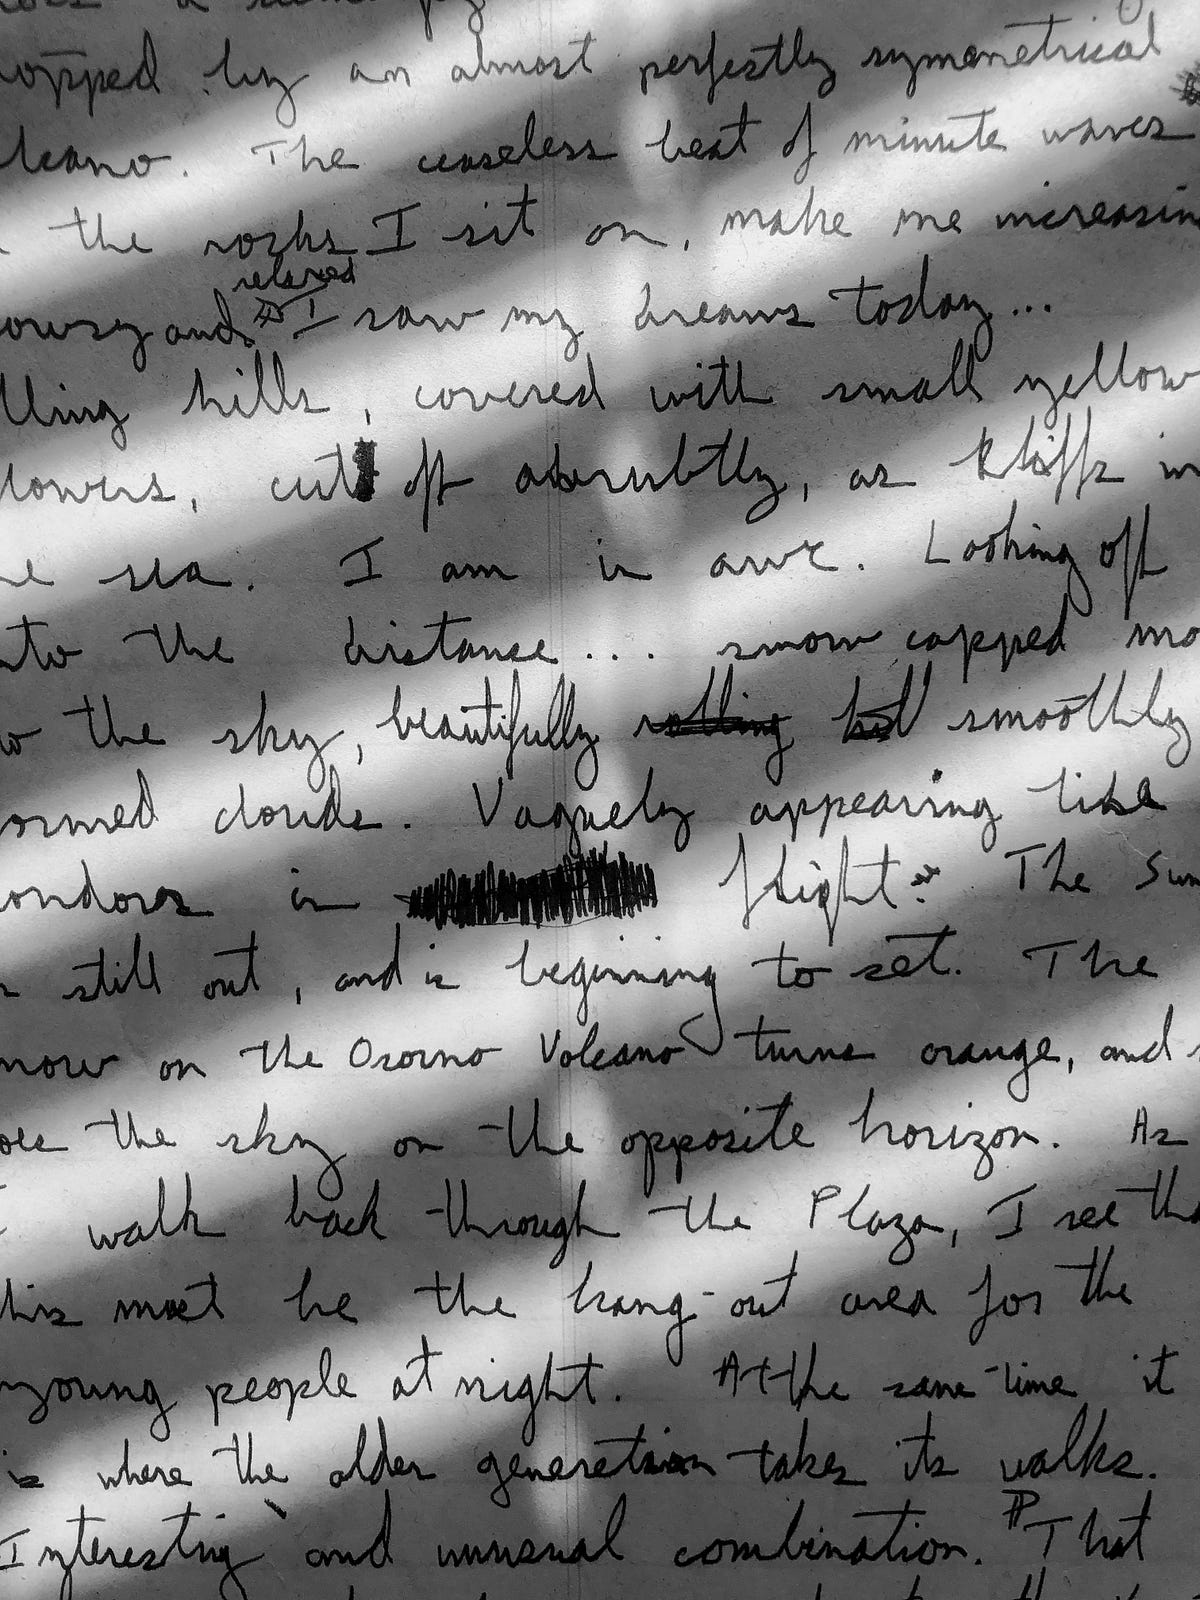 topped by an almost perfectly symmetrical
lcano. The ceaseless beat of minute waves
the rocks I sit on, make me increasin
relaxed
owsy and I saw my dreams today...
lling hills, covered with small yellow
lowers, cut off abrubtly, as kliffs in
e sea. I am in awe. Looking off
nto the distance.... snow capped mo
o the sky, beautifully rolling hill smoothly
ormed clouds. Vaguely appearing like
ondors in flight. The Sun
still out, and is beginning to set. The
now on the Osorno Volcano turns orange, and
oes the sky on the opposite horizon. As
I walk back through the Plaza, I see tha
this must be the hang-out area for the
young people at night. At the same time it
is where the older generation takes its walks.
Interesting and unusual combination. That